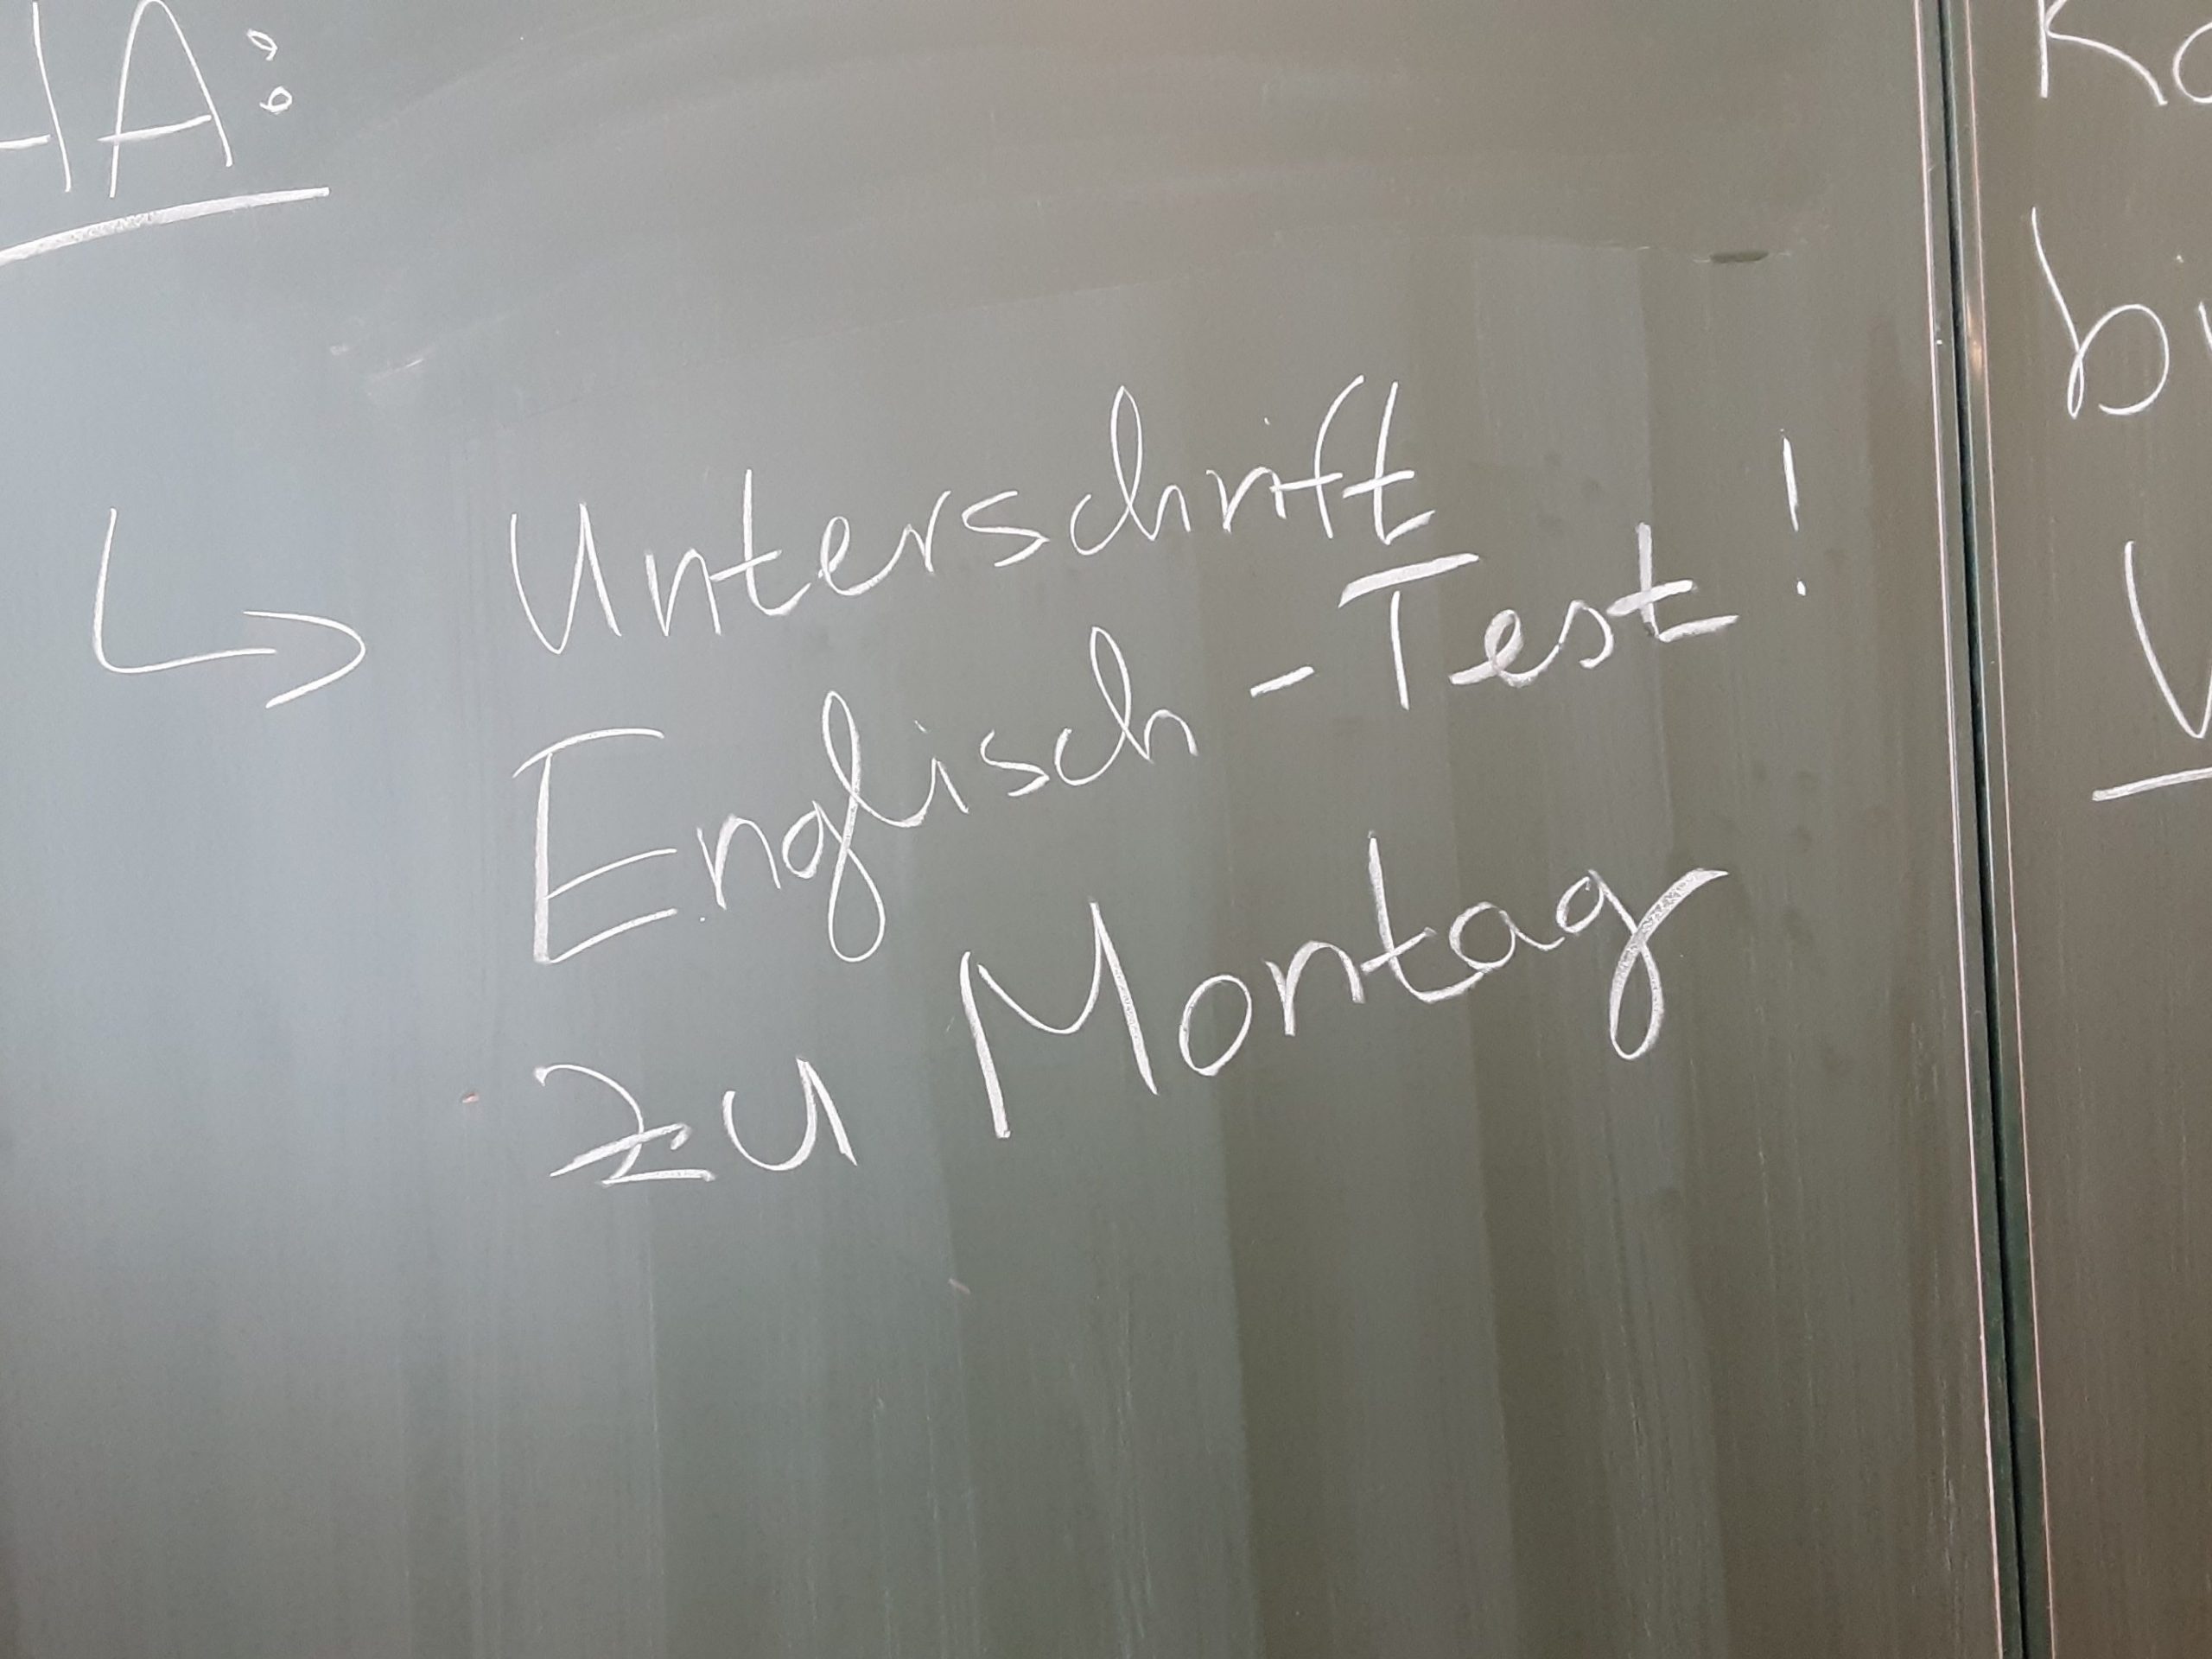 HA:
↳ Unterschrift
Englisch-Test!
zu Montag